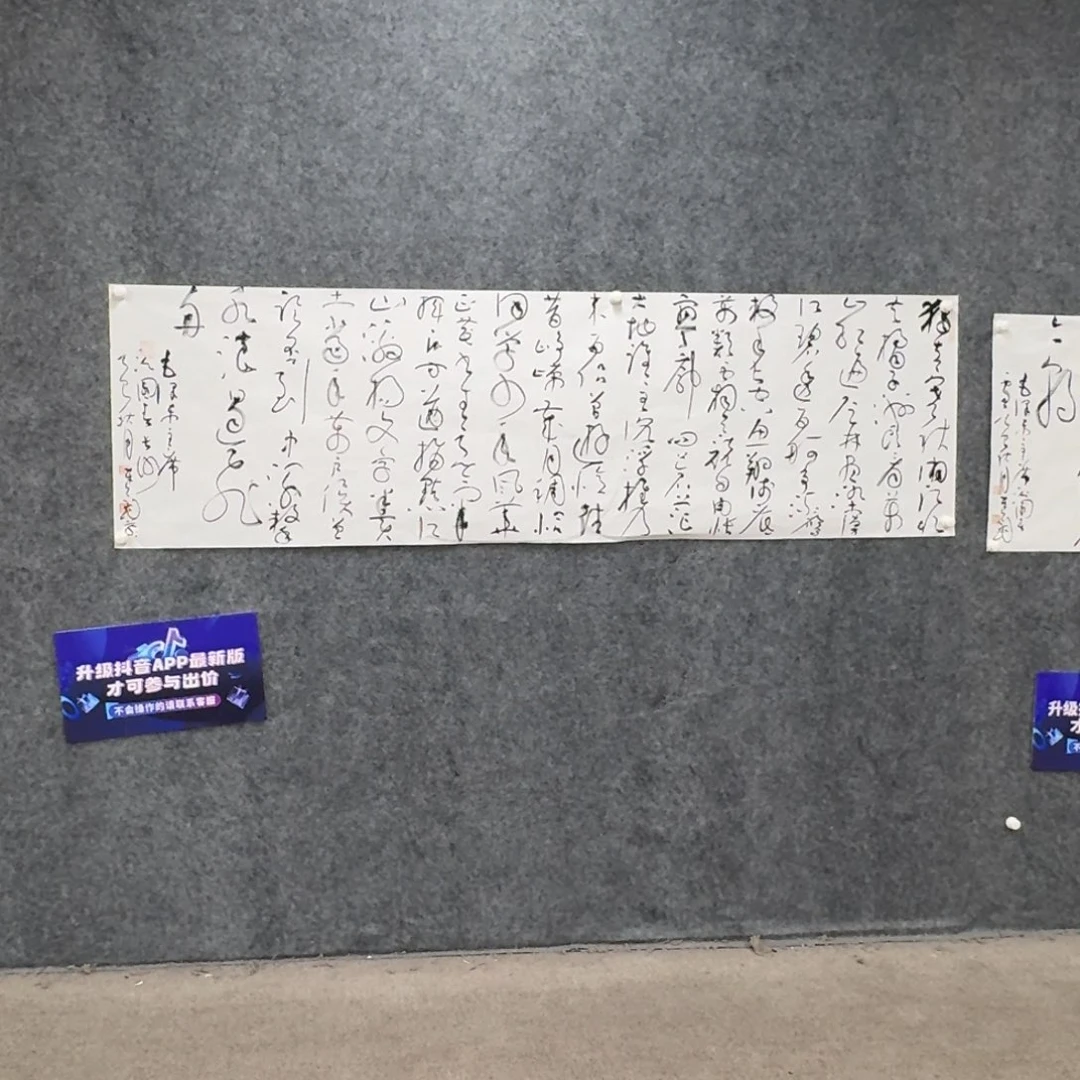 独立寒秋湘江北
去橘子洲头看万
山红遍层林尽染漫
江碧透百舸争流鹰
击长空鱼翔浅底
万类霜天竞自由怅
寥廓问苍茫
大地谁主沉浮携
来百侣曾游忆往
昔峥嵘岁月稠恰
同学少年风华
正茂书生意气
挥斥方遒指点江
山激扬文字粪
土当年万户侯曾
记否到中流击
水浪遏飞
舟
毛泽东主席
沁园春长沙
升级抖音APP最新版
才可参与出价
不会操作的请联系客服
毛泽东主席
升级
才
不